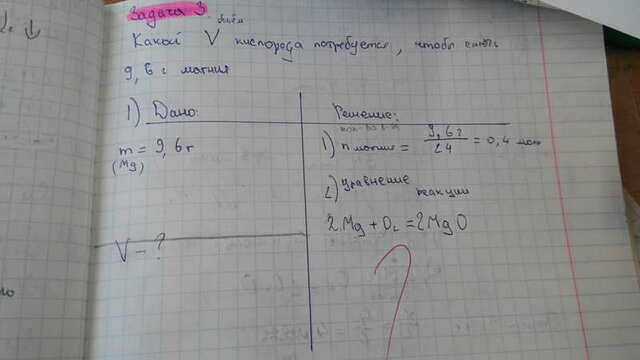 Задача 3
объём
Какой V кислорода потребуется, чтобы сжечь
9,6 г магния
1) Дано:
m = 9,6 г
(Mg)
V - ?
Решение:
кол-во в-ва
1) n магния = 9,6 г / 24 = 0,4 моль
2) уравнение
реакции
2Mg + O₂ = 2MgO
?